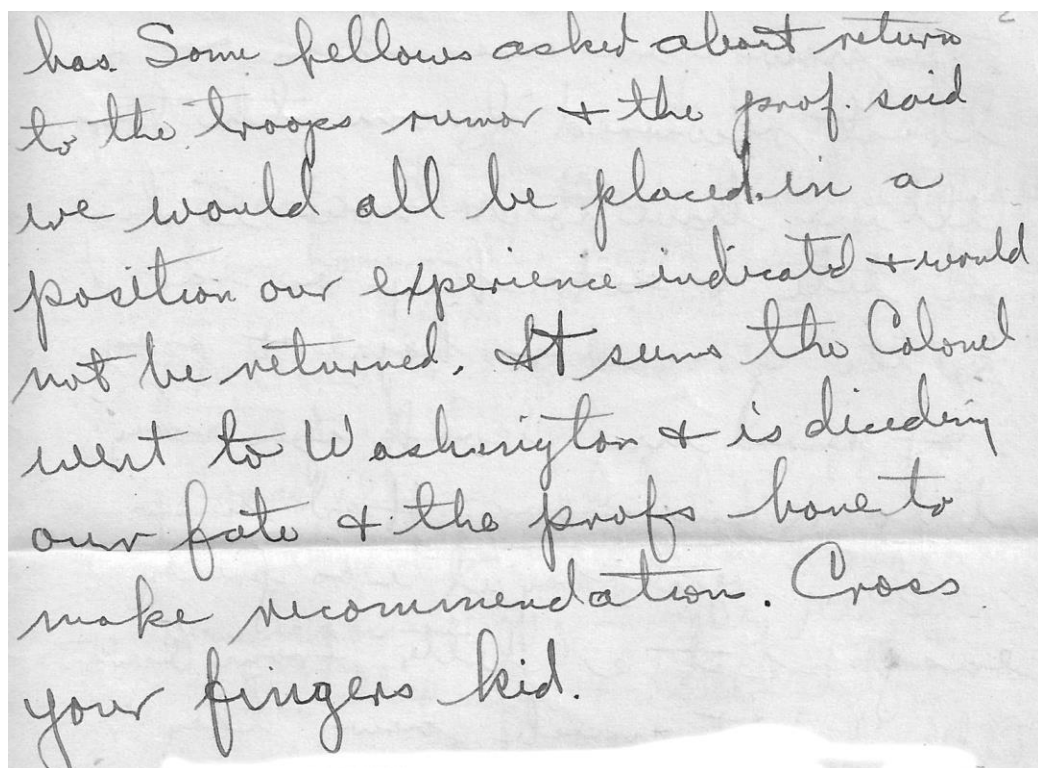 has. Some fellows asked about return
to the troops rumor + the prof. said
we would all be placed in a
position our experience indicated + would
not be returned. It seems the Colonel
went to Washington + is dicedeing
our fate + the profs have to
make recommendation. Cross
your fingers kid.